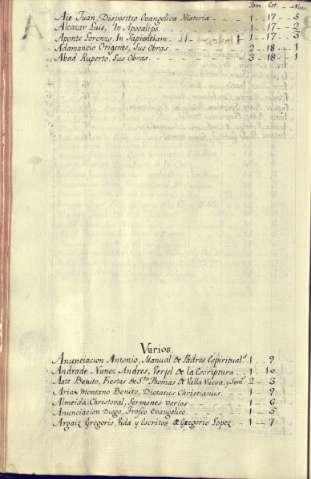 Tom. Est. Num.
Aie Juan, Dispositio Evangelica Historia - 1 - 17 - 5
Alcazar Luis, In Apocalips. - 1 - 17 - 2
Aponte Lorenzo, In Sapientiam - 1 - 17 - 3
Adamancio Origenes, Sus Obras - 2 - 18 - 1
Abad Ruperto, Sus Obras - 3 - 18 - 1
Varios
Anunciacion Antonio, Manual de Padres Espiritual.s 1 - 9
Andrade Nuñez Andres, Verjel de la Escriptura - 1 - 10
Benito, Fiestas de Sto. Thomas de Villa Nueva, y Serm.s 2 - 5
Arias Montano Benito, Dictatus Christianus - 1 - 9
Almeida Christoval, Sermones Varios - 1 - 6
Anunciacion Diego, Trofeo Evangelico - 1 - 5
Argaiz Gregorio, Vida y Escritos de Gregorio Lopez - 1 - 7